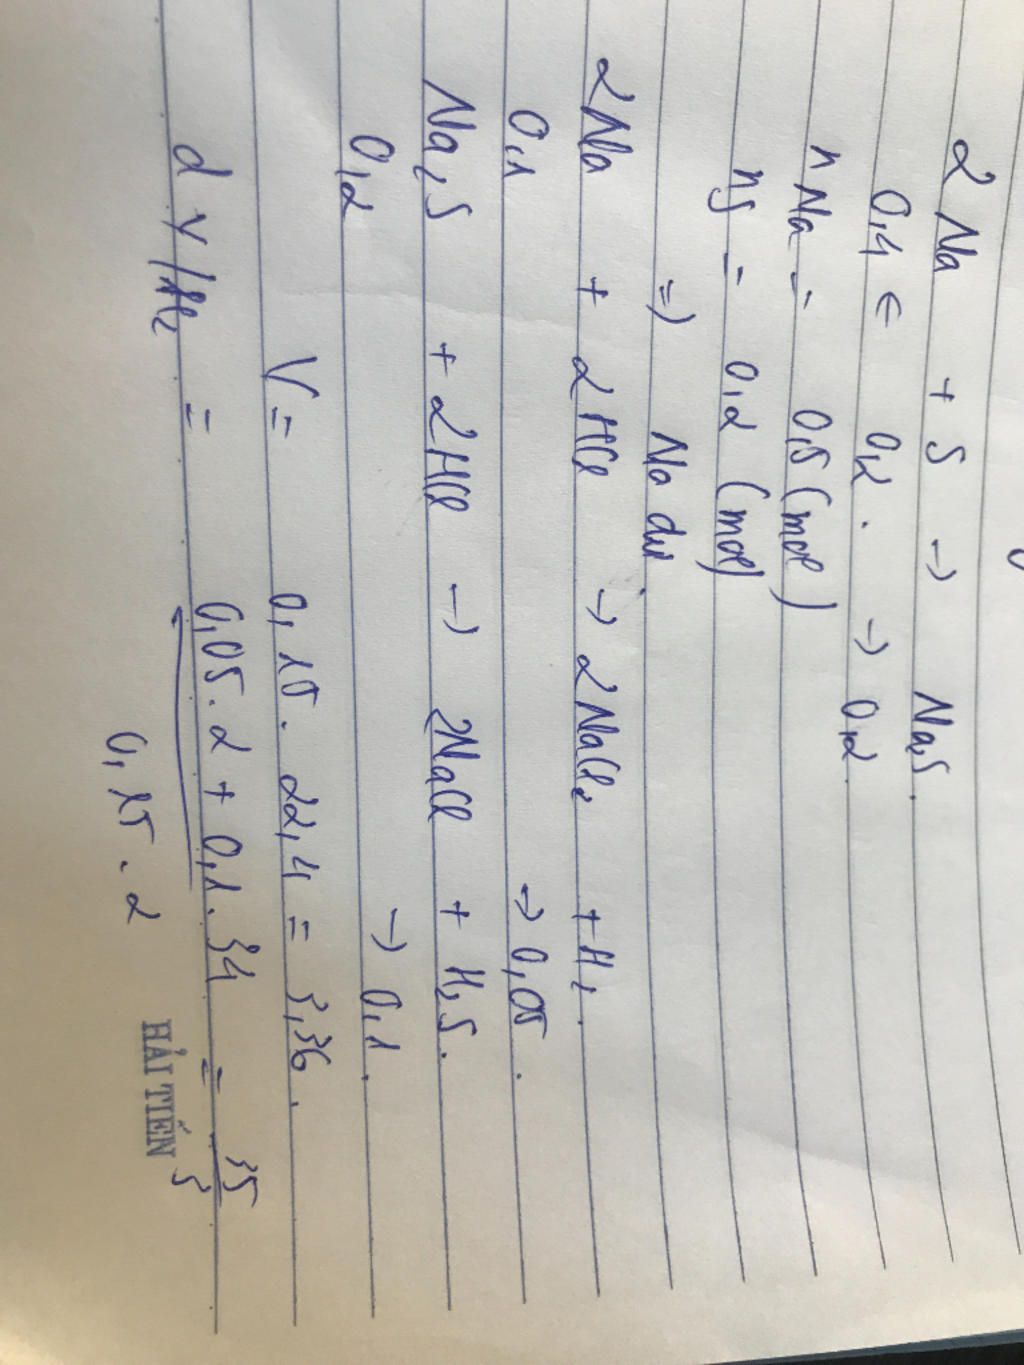 2Na + S → Na₂S.
0,4 ← 0,2. → 0,2.
nNa = 0,5 (mol)
nS = 0,2 (mol)
=> Na dư
2Na + 2HCl → 2NaCl₂ + H₂.
0,1 → 0,05.
Na₂S + 2HCl → 2NaCl + H₂S.
0,2 → 0,1.
V = 0,15. 22,4 = 3,36.
d Y/H₂ = 0,05.2 + 0,1.34 = 35
0,15.2 3
HẢI TIẾN